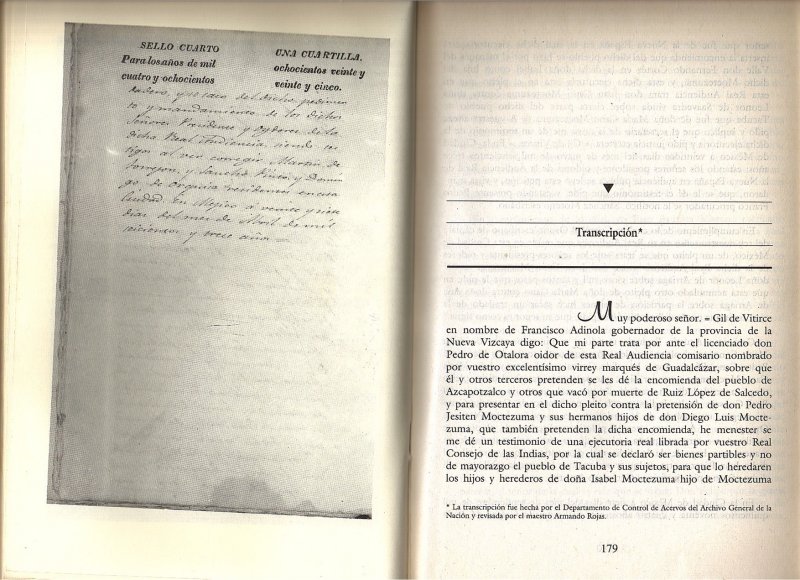 SELLO CUARTO
Para los años de mil
cuatro y ochocientos
UNA CUARTILLA.
ochocientos veinte y
veinte y cinco.
dadero, y se saco del dicho pedimen
to y mandamiento de los dichos
Señores Presidente y oydores de la
dicha Real Audiencia, siendo tes
tigos al ver corregir Martin de
y Sancho y Domin
go, de residentes en esta
Ciudad. En Mejico á veinte y siete
dias del mes de Abril de mil
seiscientos y trece años
Transcripción*
Muy poderoso señor. = Gil de Vitirce
en nombre de Francisco Adinola gobernador de la provincia de la
Nueva Vizcaya digo: Que mi parte trata por ante el licenciado don
Pedro de Otalora oidor de esta Real Audiencia comisario nombrado
por vuestro excelentísimo virrey marqués de Guadalcázar, sobre que
él y otros terceros pretenden se les dé la encomienda del pueblo de
Azcapotzalco y otros que vacó por muerte de Ruiz López de Salcedo,
y para presentar en el dicho pleito contra la pretensión de don Pedro
Jesiten Moctezuma y sus hermanos hijos de don Diego Luis Mocte-
zuma, que también pretenden la dicha encomienda, he menester se
me dé un testimonio de una ejecutoria real librada por vuestro Real
Consejo de las Indias, por la cual se declaró ser bienes partibles y no
de mayorazgo el pueblo de Tacuba y sus sujetos, para que lo heredaren
los hijos y herederos de doña Isabel Moctezuma hijo de Moctezuma
* La transcripción fue hecha por el Departamento de Control de Acervos del Archivo General de la
Nación y revisada por el maestro Armando Rojas.
179